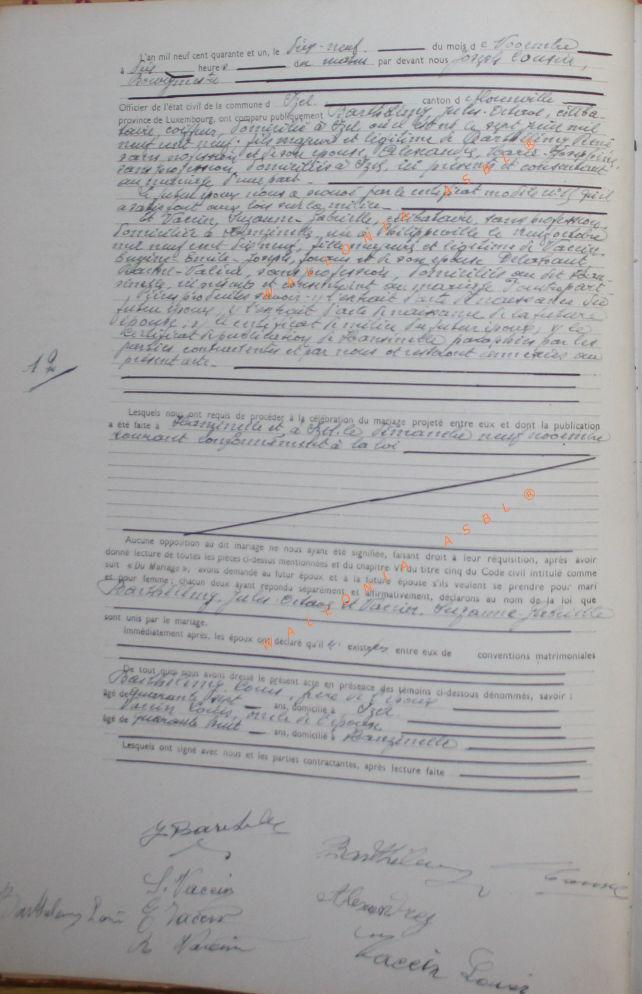 L'an mil neuf cent quarante et un, le dix-neuf du mois de Novembre
à dix heures du matin par devant nous Joseph
Bourgmestre
Officier de l'état civil de la commune d Izel canton d
province de Luxembourg, ont comparu publiquement Barthélemy, Jules-Octave, céliba-
taire, coiffeur, domicilié à Izel, où il est né le sept juin mil
neuf cent neuf, fils majeur et légitime de Barthélemy
sans profession et de son épouse Alexandre, Marie-Joséphine,
sans profession, domiciliés à Izel, ici présents et consentant
au mariage d'une part.
Le futur époux nous a prouvé par le certificat modèle qu'il
a satisfait aux lois sur la milice
et Vaccin, Suzanne-Gabrielle, célibataire, sans profession,
domiciliée à née à Philippeville le neuf octobre
mil neuf cent dix neuf, fille majeure et légitime de Vaccin,
Eugène-Emile-Joseph, et de son épouse
Rachel-Valérie, sans profession, domiciliés au dit
ici présents et consentant au mariage d'autre part
Pièces produites savoir: 1) l'extrait d'acte de naissance du
futur époux, 2) l'extrait d'acte de naissance de la future
épouse, 3) le certificat de milice du futur époux, 4) le
certificat de publication de paraphées par les
parties contractantes et par nous et resteront annexées au
présent acte.
19
Lesquels nous ont requis de procéder à la célébration du mariage projeté entre eux et dont la publication
a été faite à et à Izel, le dimanche neuf novembre
courant conformément à la loi
Aucune opposition au dit mariage ne nous ayant été signifiée, faisant droit à leur réquisition, après avoir
donné lecture de toutes les pièces ci-dessus mentionnées et du chapitre VI du titre cinq du Code civil intitulé comme
suit « Du Mariage », avons demandé au futur époux et à la future épouse s'ils veulent se prendre pour mari
et pour femme; chacun deux ayant répondu séparément et affirmativement, déclarons au nom de la loi que
Barthélemy, Jules-Octave et Vaccin, Suzanne-Gabrielle
sont unis par le mariage.
Immédiatement après, les époux ont déclaré qu'il existe entre eux de conventions matrimoniales
De tout quoi nous avons dressé le présent acte en présence des témoins ci-dessous dénommés, savoir :
Barthélemy, Louis, frère de l'époux
âgé de quarante ans, domicilié à Izel
Vaccin Louis, oncle de l'épouse
âgé de quarante huit ans, domicilié à
Lesquels ont signé avec nous et les parties contractantes, après lecture faite
J. Barthélemy
Barthélemy
S. Vaccin
Barthélemy Louis E Vaccin
Alexandre
Vaccin
Vaccin Louis
WALLONIA ASBL ®
WALLONIA ASBL ®